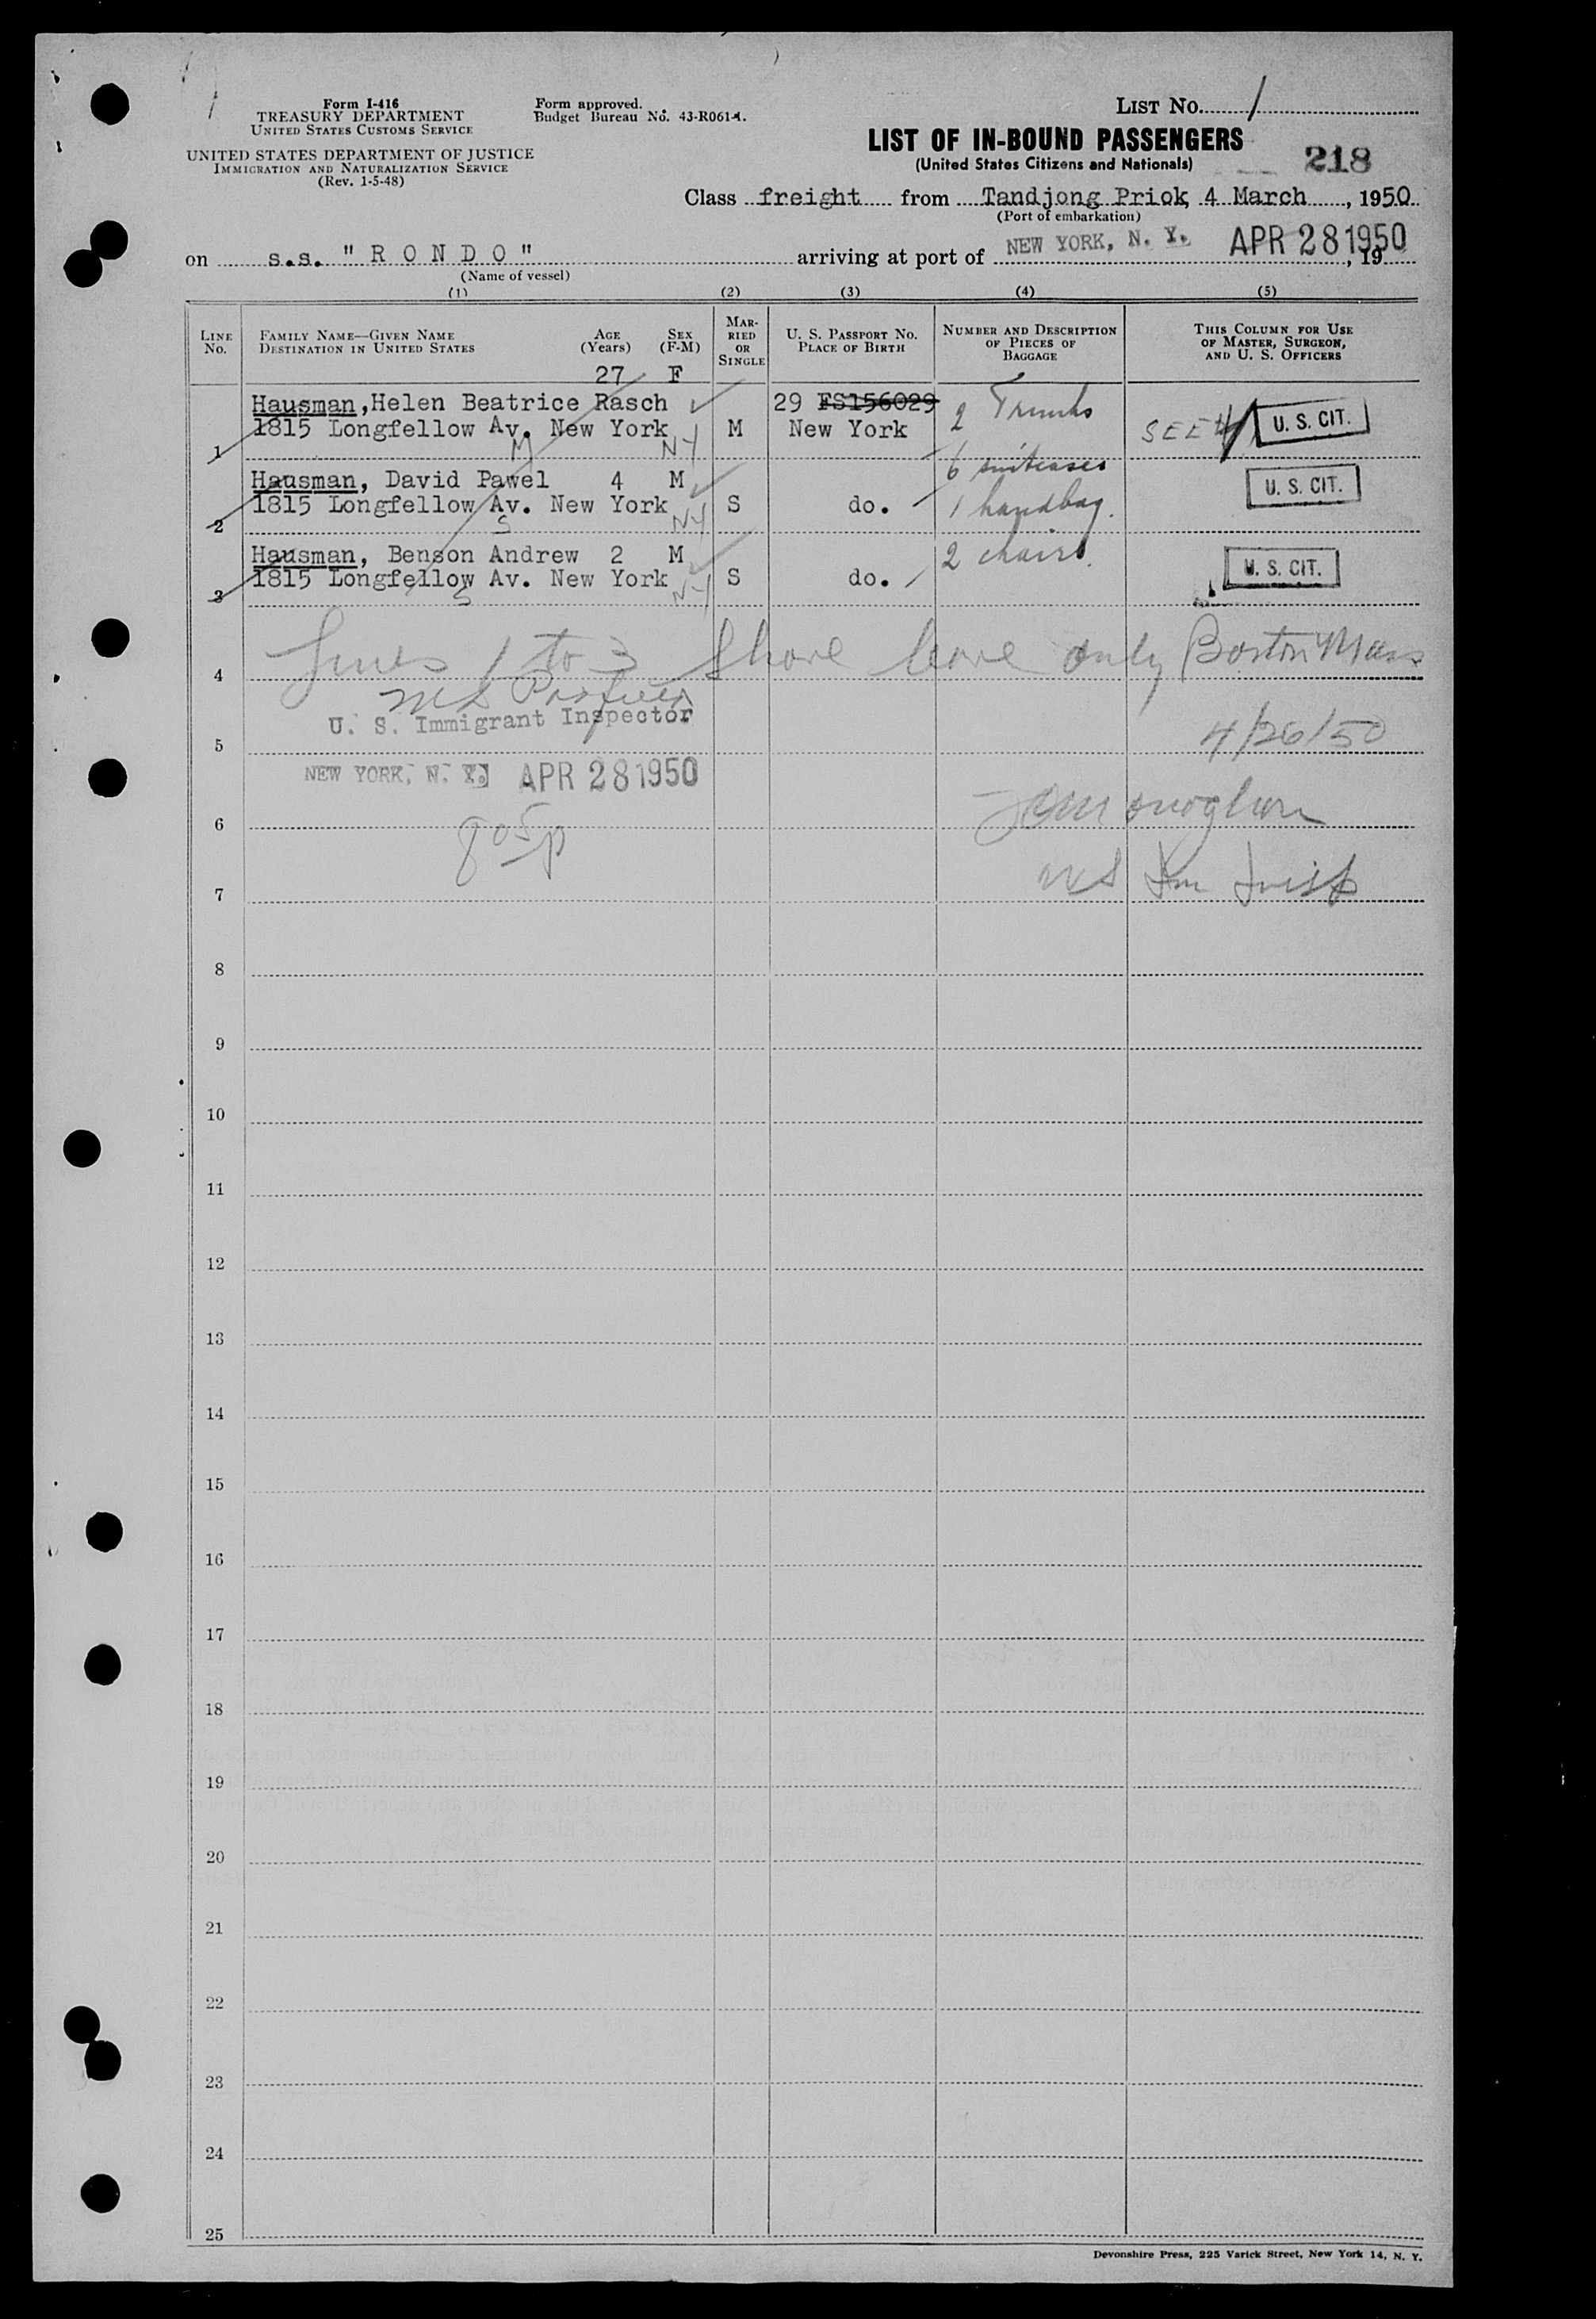 Form I-416
TREASURY DEPARTMENT
UNITED STATES CUSTOMS SERVICE
UNITED STATES DEPARTMENT OF JUSTICE
IMMIGRATION AND NATURALIZATION SERVICE
(Rev. 1-5-48)
Form approved.
Budget Bureau No. 43-R061-4.
LIST No. 1
LIST OF IN-BOUND PASSENGERS
(United States Citizens and Nationals)
218
Class freight from Tandjong Priok, 4 March, 1950
(Port of embarkation)
on s.s. "RONDO" arriving at port of NEW YORK, N. Y. APR 28 1950, 19
(Name of vessel)
(1) (2) (3) (4) (5)
LINE No.
FAMILY NAME—GIVEN NAME
DESTINATION IN UNITED STATES
AGE (Years)
SEX (F-M)
MARRIED OR SINGLE
U. S. PASSPORT NO.
PLACE OF BIRTH
NUMBER AND DESCRIPTION OF PIECES OF BAGGAGE
THIS COLUMN FOR USE OF MASTER, SURGEON, AND U. S. OFFICERS
27 F
Hausman, Helen Beatrice Rasch 29 FS156029 2 Trunks
1 1815 Longfellow Av. New York M New York SEE # U. S. CIT.
M NY
Hausman, David Pawel 4 M 6 suitcases
2 1815 Longfellow Av. New York S do. 1 handbag. U. S. CIT.
S NY
Hausman, Benson Andrew 2 M 2 chairs.
3 1815 Longfellow Av. New York S do. U. S. CIT.
S NY
4 Lines 1 to 3 Shore leave only Boston Mass
U. S. Immigrant Inspector
5 4/26/50
NEW YORK, N. Y. APR 28 1950
6
805p
7 US Im Insp
8
9
10
11
12
13
14
15
16
17
18
19
20
21
22
23
24
25
Devonshire Press, 225 Varick Street, New York 14, N. Y.